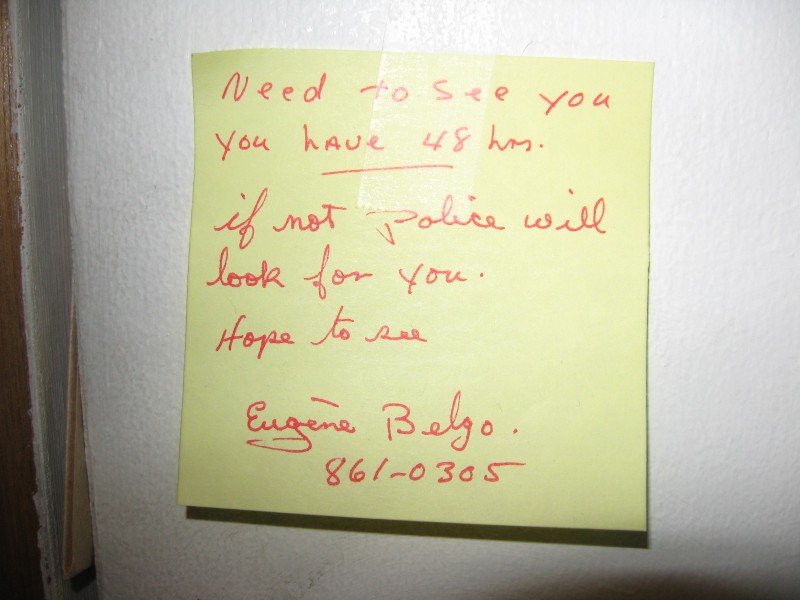 Need to see you
you have 48 hrs.
if not police will
look for you.
Hope to see
Eugène Belgo.
861-0305